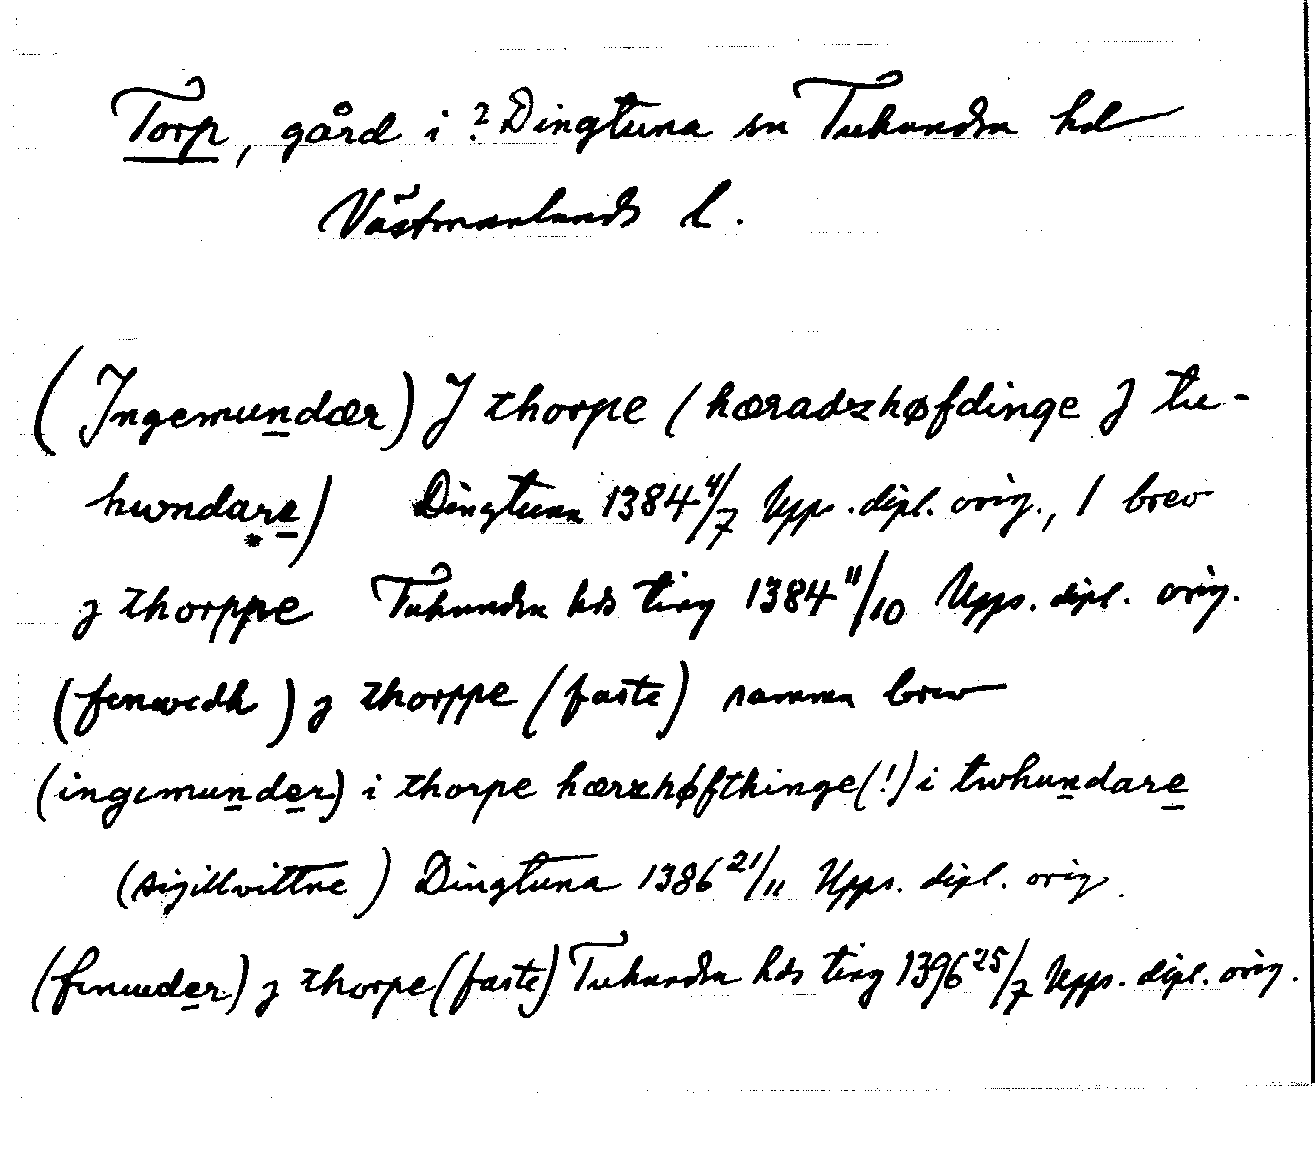 Torp, gård i ? Dingtuna sn Tuhundra hd
Västmanlands l.
(Jngemundær) J thorpe (hæradzhøfdinge J tu-
hwndare) Dingtuna 1384 4/7 Upps. dipl. orig., 1 brev
j thorppe Tuhundra hds ting 1384 11/10 Upps. dipl. orig.
(finwedh) j thorppe (faste) samma brev
(ingimunder) i thorpe hærzhøfthinge(!) i twhundare
(sigillvittne) Dingtuna 1386 21/11 Upps. dipl. orig.
(finueder) j thorpe (faste) Tuhundra hds ting 1396 25/7 Upps. dipl. orig.